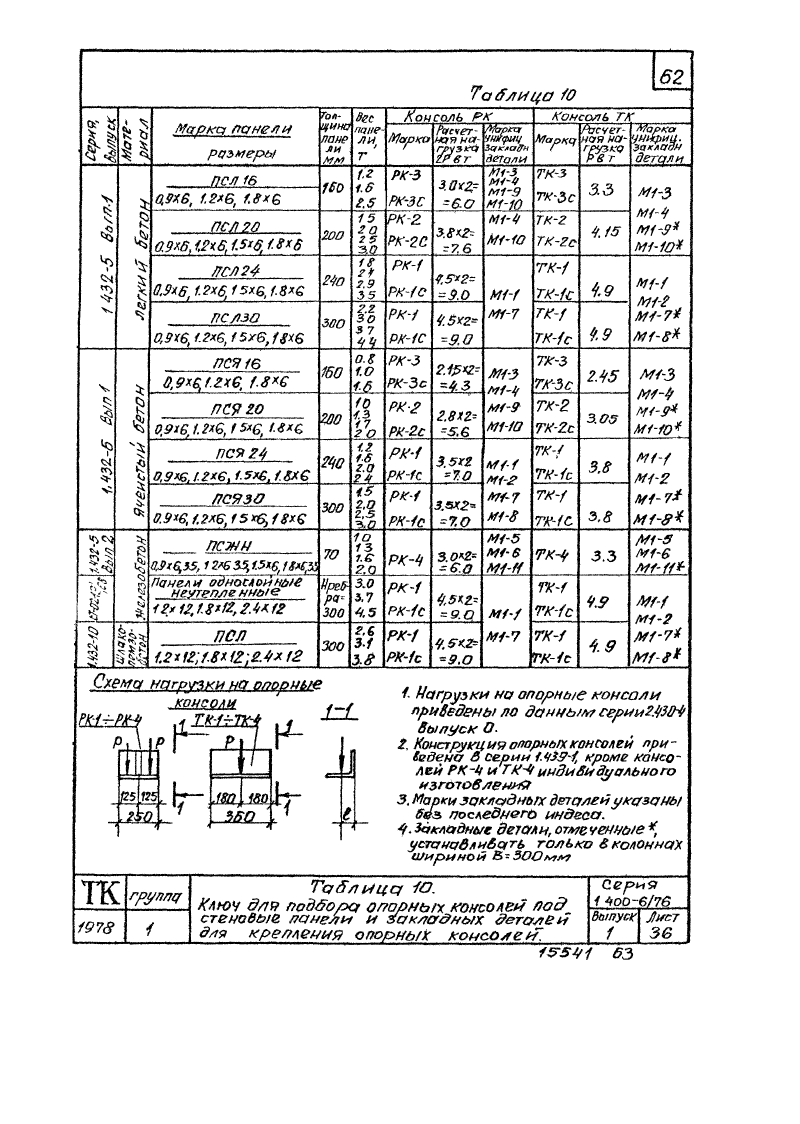 62
Таблица 10
Серия, выпуск
Материал
Марка панели
размеры
Толщина панели мм
Вес панели, Т
Консоль РК
Марка
Расчетная нагрузка 2Р в т
Марка унифиц. закладн детали
Консоль ТК
Марка
Расчетная нагрузка Р в т
Марка унифиц. закладн детали
1.432-5 Вып.1
легкий бетон
ПСЛ 16
0,9х6, 1.2х6, 1.8х6
160
1.2
1.6
2.5
РК-3
РК-3С
3.0х2=
=6.0
М1-3
М1-4
М1-9
М1-10
ТК-3
ТК-3с
3.3
М1-3
М1-4
М1-9*
М1-10*
ПСЛ 20
0,9х6, 1.2х6, 1.5х6, 1.8х6
200
1 5
2 0
2 5
3.0
РК-2
РК-2С
3.8х2=
=7.6
М1-4
М1-10
ТК-2
ТК-2с
4.15
ПСЛ24
0,9х6, 1.2х6, 1 5х6, 1.8х6
240
1 8
2 4
2.9
3 5
РК-1
РК-1с
4,5х2=
=9.0
М1-1
М1-7
ТК-1
ТК-1с
4.9
М1-1
М1-2
М1-7*
М1-8*
ПСЛ30
0,9х6, 1.2х6, 1 5х6, 1 8х6
300
2.2
3 0
3 7
4 4
РК-1
РК-1С
4.5х2=
=9.0
ТК-1
ТК-1с
4.9
1.432-5 Вып1
Ячеистый бетон
ПСЯ 16
0,9х6, 1.2х6, 1.8х6
160
0.8
1.0
1.6
РК-3
РК-3с
2.15х2=
=4.3
М1-3
М1-4
М1-9
М1-10
ТК-3
ТК-3с
2.45
М1-3
М1-4
М1-9*
М1-10*
ПСЯ 20
0,9х6, 1.2х6, 1 5х6, 1.8х6
200
1 0
1.3
1.7
2 0
РК-2
РК-2с
2.8х2=
=5.6
ТК-2
ТК-2с
3.05
ПСЯ 24
0,9х6, 1.2х6, 1.5х6, 1.8х6
240
1.2
1.6
2.0
2 4
РК-1
РК-1с
3.5х2
=7.0
М1-1
М1-2
М1-7
М1-8
ТК-1
ТК-1с
3,8
М1-1
М1-2
М1-7*
М1-8*
ПСЯ30
0.9х6, 1.2х6, 1 5х6, 1.8х6
300
1.5
2.0
2,5
3.0
РК-1
РК-1с
3.5х2=
=7.0
ТК-1
ТК-1С
3.8
1.432-5 Вып 2
Железобетон
ПСЖН
0,9х6,35, 1 2х6 35, 1.5х6, 1 8х6,35
70
1 0
1 3
1.6
2.0
РК-4
3.0х2=
=6.0
М1-5
М1-6
М1-11
ТК-4
3.3
М1-5
М1-6
М1-11*
Панели однослойные
неутепленные
1 2х12, 1.8х12, 2.4х12
Нреб
ра=
300
3.0
3.7
4,5
РК-1
РК-1с
4,5х2=
=9.0
М1-1
М1-7
ТК-1
ТК-1с
4.9
М1-1
М1-2
М1-7*
М1-8*
1.432-10
Шлакопемзобетон
ПСЛ
1.2х12; 1.8х12; 2.4х12
300
2.6
3.1
3.8
РК-1
РК-1с
4.5х2=
=9.0
ТК-1
ТК-1с
4.9
Схема нагрузки на опорные
консоли
РК1÷РК-4
ТК-1÷ТК-4
1-1
Р
Р
Р
1
1
1
1
125
125
250
180
180
360
ℓ
1. Нагрузки на опорные консоли
приведены по данным серии 2.430-4
выпуск 0.
2. Конструкция опорных консолей при-
ведена в серии 1.439-1, кроме консо-
лей РК-4 и ТК-4 индивидуального
изготовления
3. Марки закладных деталей указаны
без последнего индекса.
4. Закладные детали, отмеченные *,
устанавливать только в колоннах
шириной В=300мм
ТК
группа
1978
1
Таблица 10.
Ключ для подбора опорных консолей под
стеновые панели и закладных деталей
для крепления опорных консолей.
Серия
1 400-6/76
Выпуск
1
Лист
36
15541 63